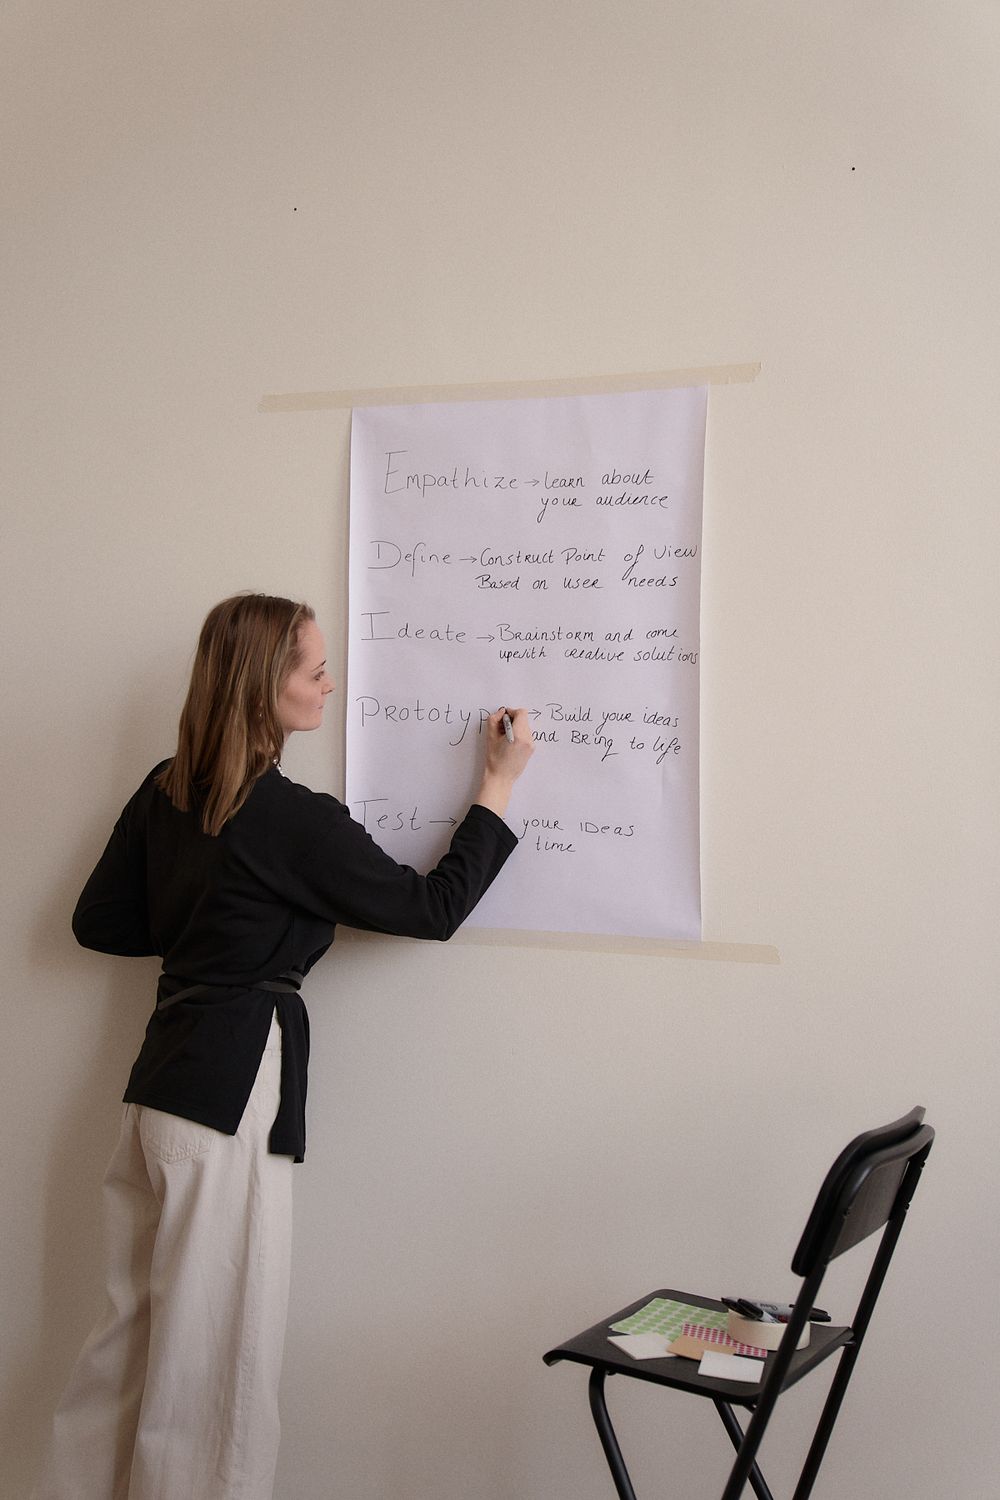 Empathize → learn about
your audience
Define → Construct Point of View
Based on user needs
Ideate → Brainstorm and come
upwith creative solutions
Prototype → Build your ideas
and Bring to life
Test → your IDeas
time